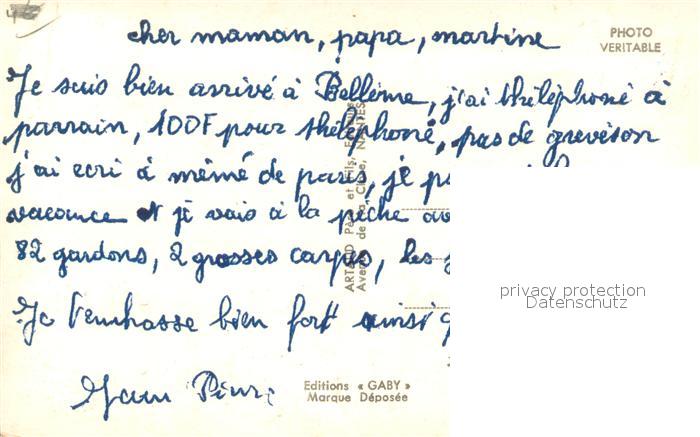 cher maman, papa, martine
PHOTO
VERITABLE
Je suis bien arrivé à Bellême, j'ai théléphoné à
parrain, 100F pour théléphoné, pas de
j'ai ecri à mémé de paris, je
vacance et je vais à la pêche
82 gardons, 2 grosses carpes, les
Je t'embrasse bien fort ainsi
Jean Pierre
ARTAUD Père et Fils, Editeurs
Avenue de la Close, NANTES
Editions « GABY »
Marque Déposée
privacy protection
Datenschutz